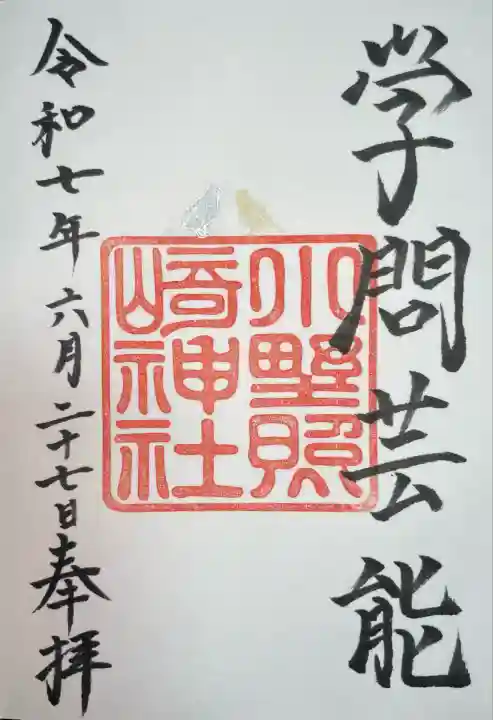 学問芸能
小野照
崎神社
令和七年六月二十七日奉拝